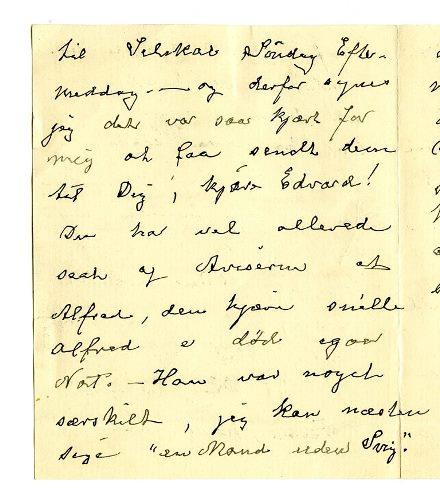 til Selskab Söndag Efter-
middag. — og derfor synes
jeg det var saa kjært for
mig at faa sendt dem
til Dig, kjære Edvard!
Du har vel allerede
seet af Aviserne at
Alfred, den kjære snille
Alfred er död igaar
Nat. — Han var noget
særskilt, jeg kan næsten
sige "en Mand uden Svig".